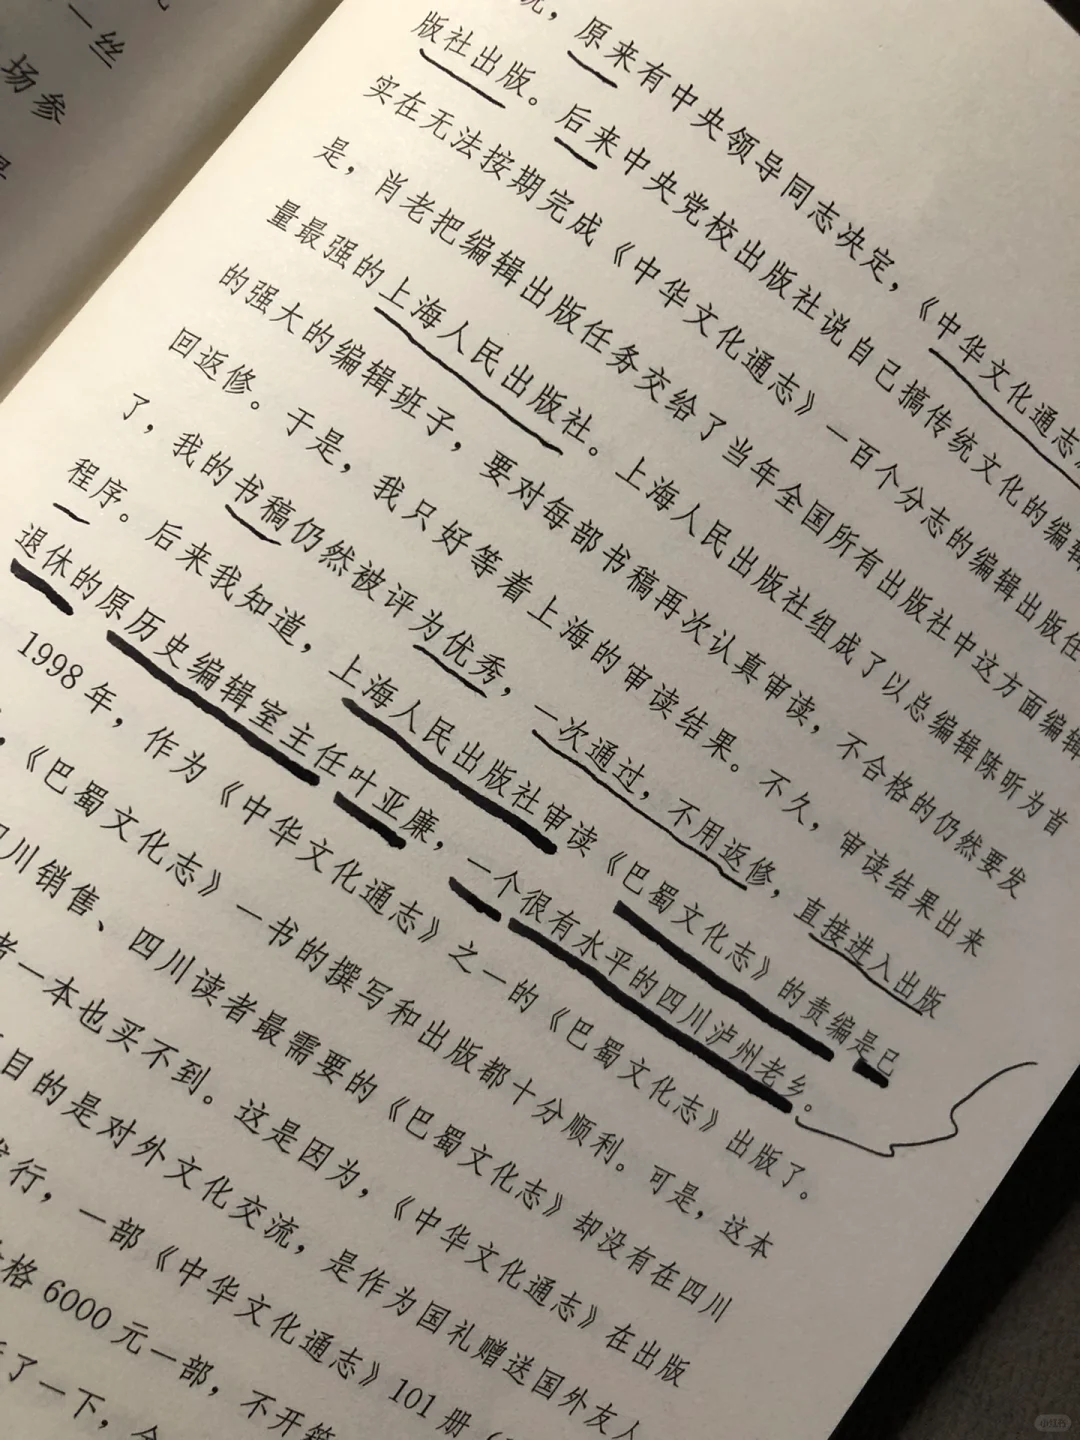 一丝
场参
，原来有中央领导同志决定，《中华文化通志
版社出版。后来中央党校出版社说自己搞传统文化的编辑
实在无法按期完成《中华文化通志》一百个分志的编辑出版任
是，肖老把编辑出版任务交给了当年全国所有出版社中这方面编辑
量最强的上海人民出版社。上海人民出版社组成了以总编辑陈昕为首
的强大的编辑班子，要对每部书稿再次认真审读，不合格的仍然要发
回返修。于是，我只好等着上海的审读结果。不久，审读结果出来
了，我的书稿仍然被评为优秀，一次通过，不用返修，直接进入出版
程序。后来我知道，上海人民出版社审读《巴蜀文化志》的责编是已
退休的原历史编辑室主任叶亚廉，一个很有水平的四川泸州老乡。
1998年，作为《中华文化通志》之一的《巴蜀文化志》出版了。
，《巴蜀文化志》一书的撰写和出版都十分顺利。可是，这本
四川销售、四川读者最需要的《巴蜀文化志》却没有在四川
者一本也买不到。这是因为，《中华文化通志》在出版
目的是对外文化交流，是作为国礼赠送国外友人
发行，一部《中华文化通志》101册（
价格6000元一部，不开
了一下，